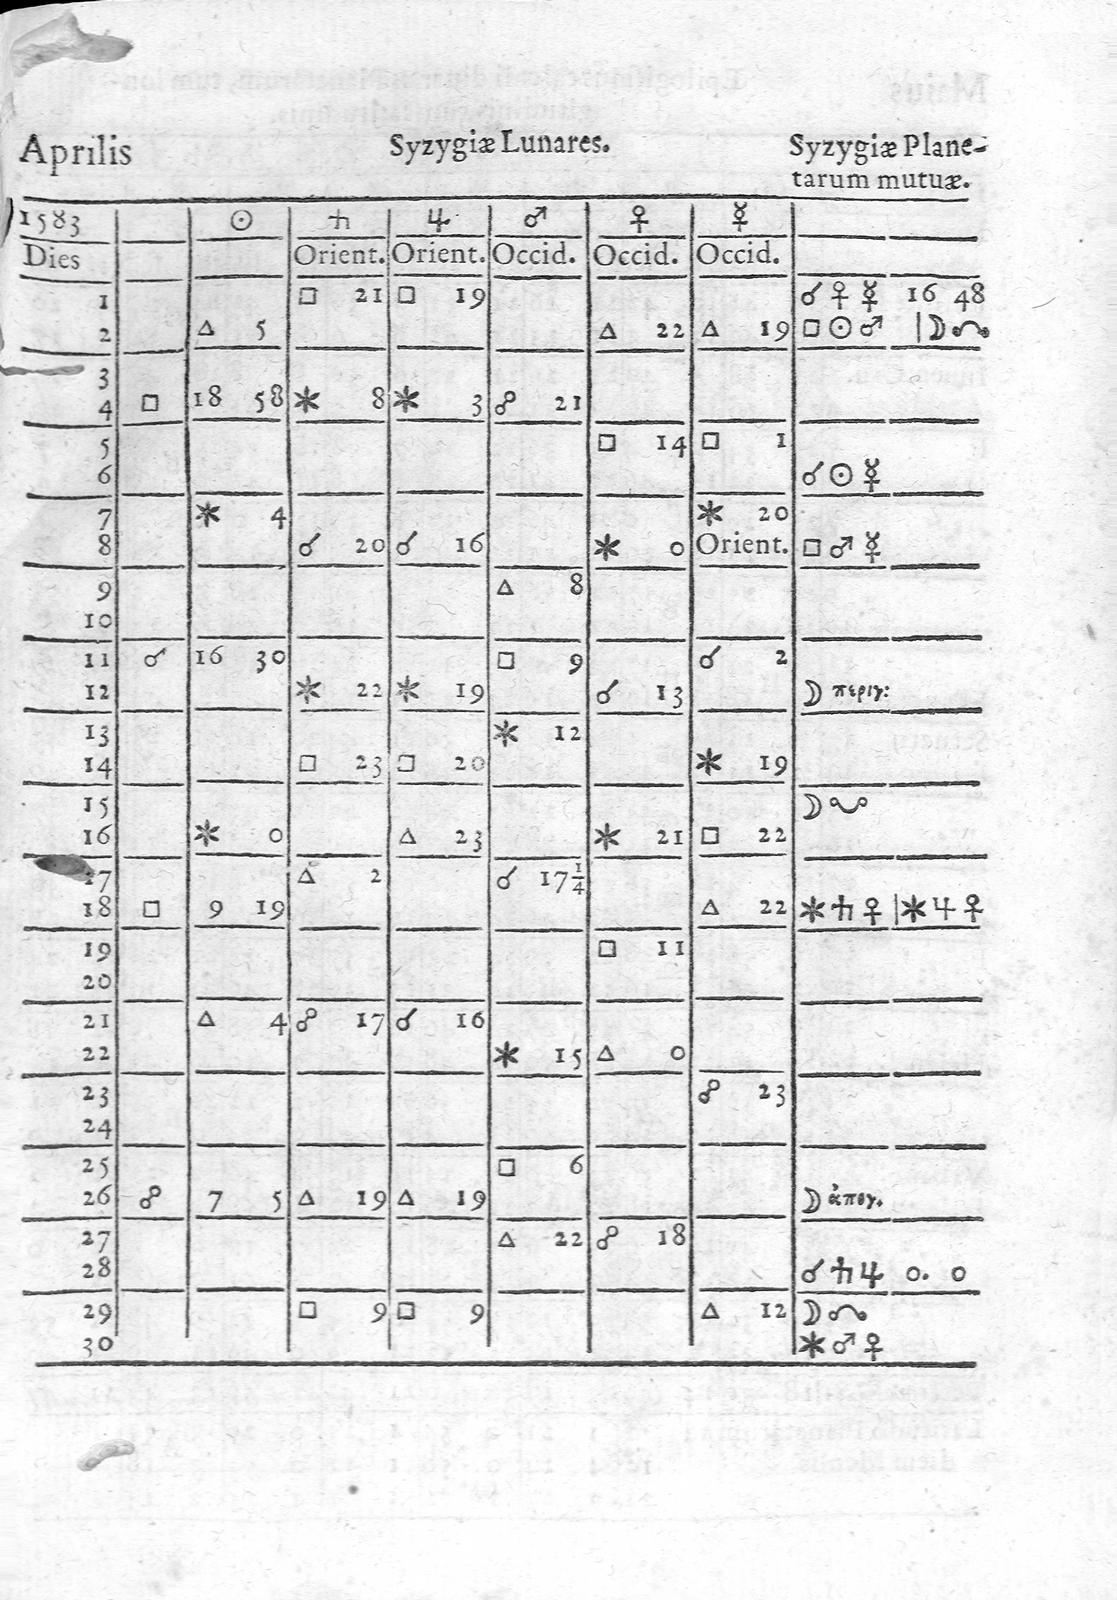 Aprilis Syzygiæ Lunares. Syzygiæ Plane-
tarum mutuæ.
1583 ☉ ♄ ♃ ♂ ♀ ☿
Dies Orient. Orient. Occid. Occid. Occid.
1 □ 21 □ 19 ☌ ♀ ☿ 16 48
2 △ 5 △ 22 △ 19 □ ☉ ♂ | ☽ ☊
3
4 □ 18 58 ✶ 8 ✶ 3 ☍ 21
5 □ 14 □ 1
6 ☌ ☉ ☿
7 ✶ 4 ✶ 20
8 ☌ 20 ☌ 16 ✶ 0 Orient. □ ♂ ☿
9 △ 8
10
11 ☌ 16 30 □ 9 ☌ 2
12 ✶ 22 ✶ 19 ☌ 13 ☽ περιγ:
13 ✶ 12
14 □ 23 □ 20 ✶ 19
15 ☽ ☋
16 ✶ 0 △ 23 ✶ 21 □ 22
17 △ 2 ☌ 17 1/4
18 □ 9 19 △ 22 ✶ ♄ ♀ | ✶ ♃ ♀
19 □ 11
20
21 △ 4 ☍ 17 ☌ 16
22 ✶ 15 △ 0
23 ☍ 23
24
25 □ 6
26 ☍ 7 5 △ 19 △ 19 ☽ ἀπογ.
27 △ 22 ☍ 18
28 ☌ ♄ ♃ 0. 0
29 □ 9 □ 9 △ 12 ☽ ☊
30 ✶ ♂ ♀